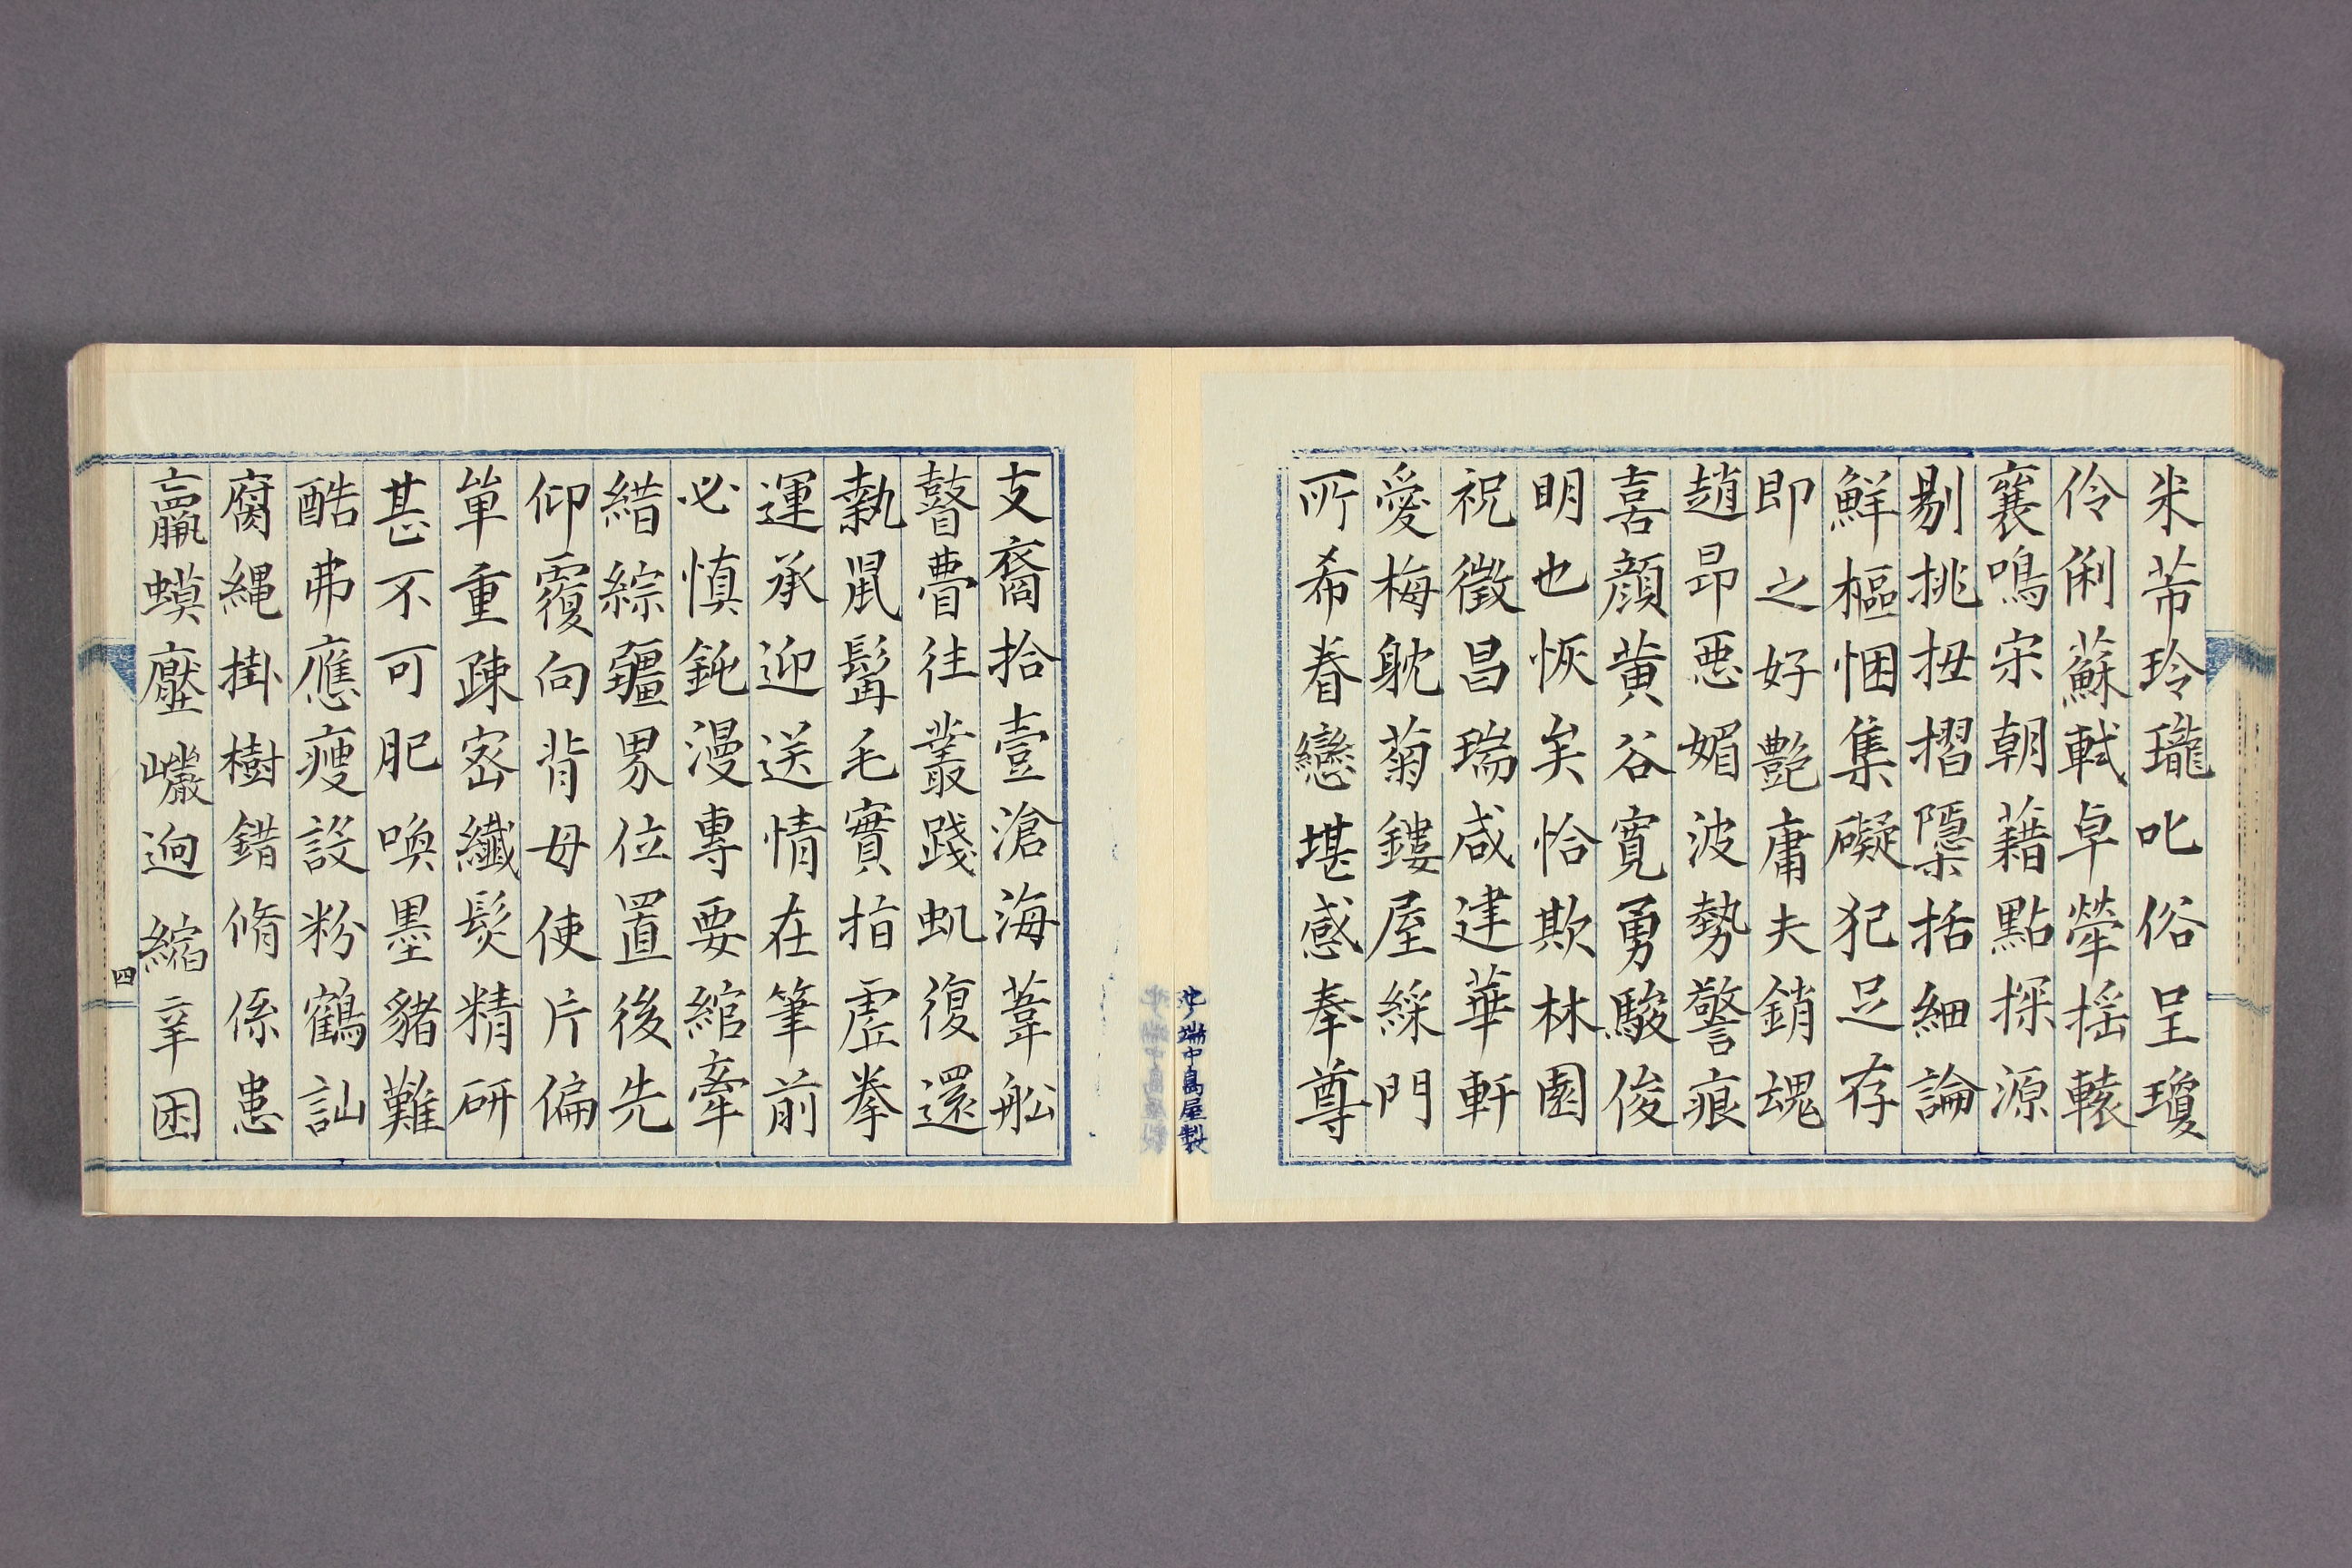 米芾玲瓏叱俗呈瓊
伶俐蘇軾卓犖搖轅
襄鳴宋朝藉點探源
剔挑扭摺隱括細論
鮮樞悃集礙犯足存
即之好艷庸夫銷魂
趙昂惡媚波勢警痕
喜顏黃谷寬勇駿俊
明也恢矣恰欺林園
祝徵昌瑞咸建華軒
愛梅躭菊鏤屋綵門
所希眷戀堪感奉尊
支裔拾壹滄海葦舩
瞽瞢往叢踐虬復還
執鼠髯毛實指虛拳
運承迎送情在筆前
必慎鈍漫專要綰牽
縉綜疆界位置後先
仰覆向背毋使片偏
單重疎密纖髮精研
甚不可肥喚墨豬難
酷弗應瘦設粉鶴訕
腐繩掛樹錯脩係患
羸蟆壓巖迥縮辛困
四
池ノ端中島屋製